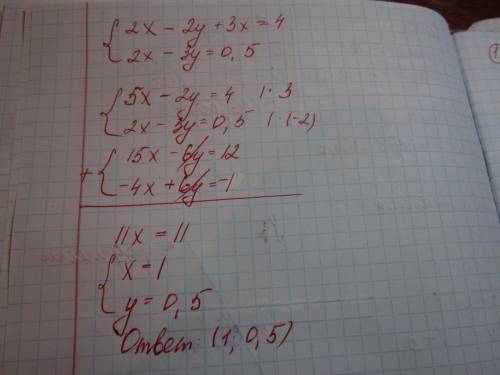 { 2x - 2y + 3x = 4
2x - 3y = 0,5
{ 5x - 2y = 4 | · 3
2x - 3y = 0,5 | · (-2)
+ { 15x - 6y = 12
-4x + 6y = -1
11x = 11
{ x = 1
y = 0,5
Ответ: (1; 0,5)